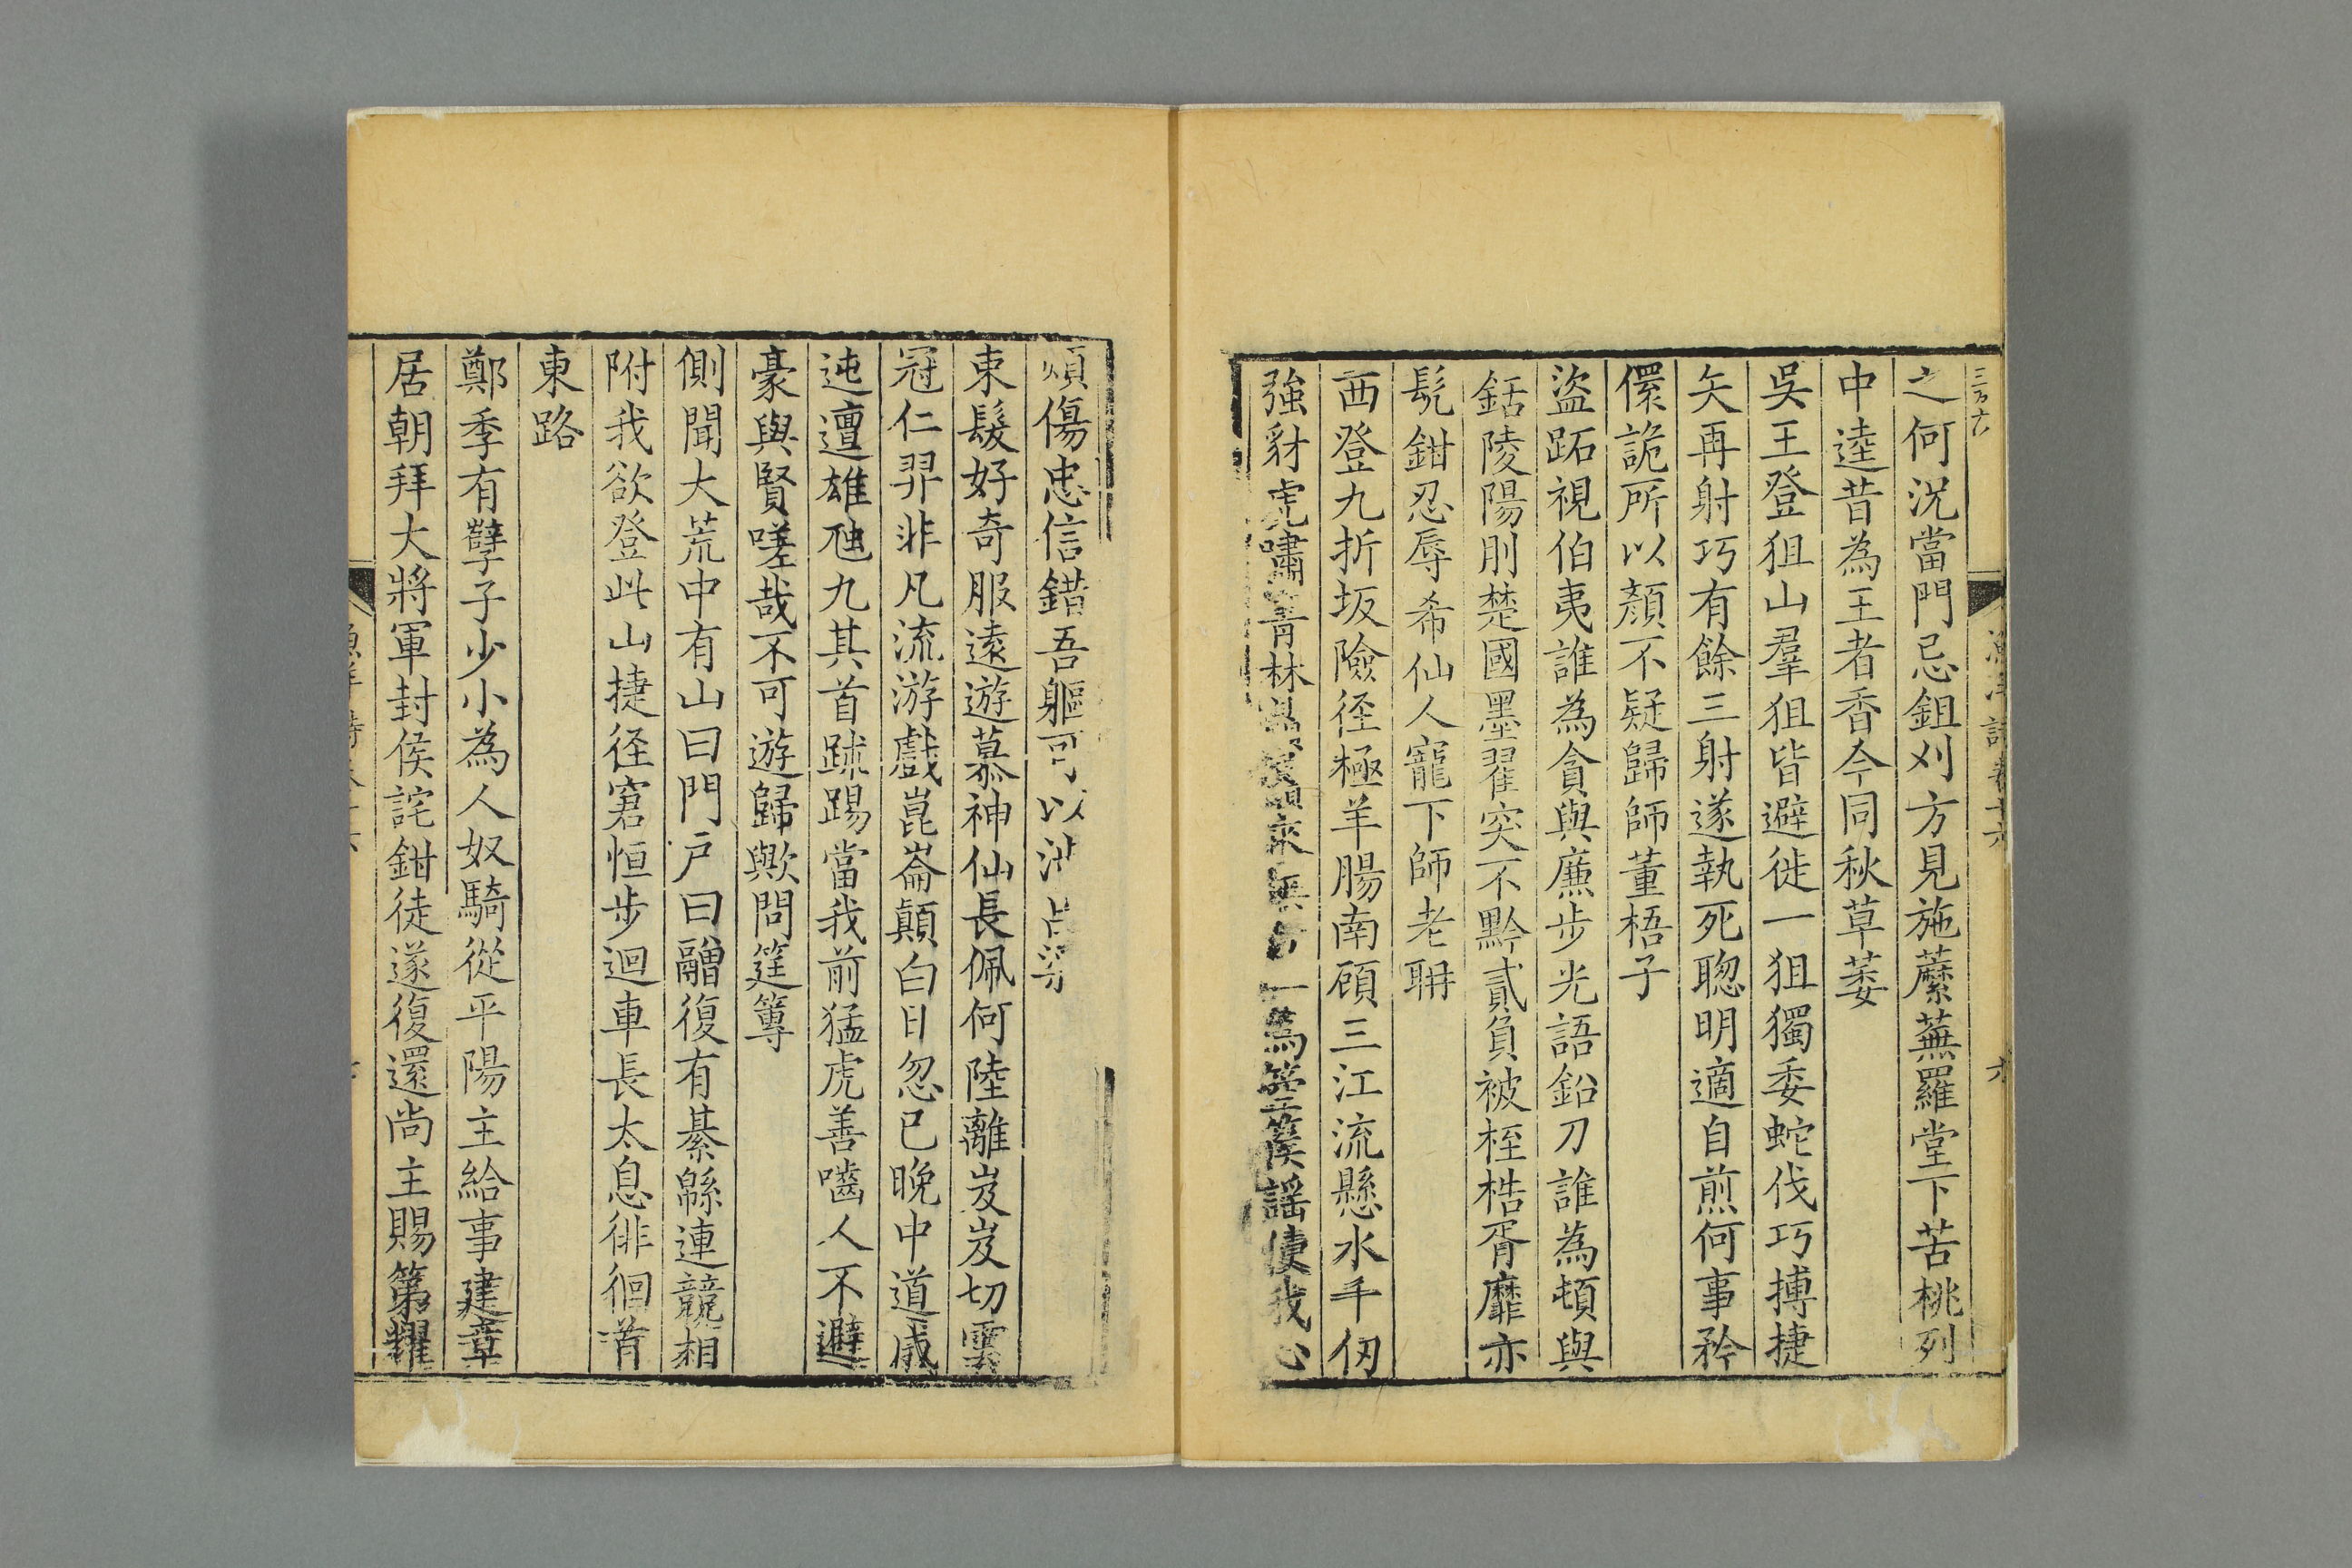 三百六
之何況當門忌鉏刈方見施蘼蕪羅堂下苦桃列
中逵昔為王者香今同秋草萎
吳王登狙山羣狙皆避徙一狙獨委蛇伐巧搏捷
矢再射巧有餘三射遂執死聰明適自煎何事矜
儇詭所以顏不疑歸師董梧子
盜跖視伯夷誰為貪與廉步光語鉛刀誰為頓與
銛陵陽刖楚國墨翟突不黔貳負被桎梏胥靡亦
髡鉗忍辱希仙人寵下師老聃
西登九折坂險徑極羊腸南顧三江流懸水千仞
強豺虎嘯青林 一為箜篌謠使我心
煩傷忠信錯吾軀可以
束髮好奇服遠遊慕神仙長佩何陸離岌岌切雲
冠仁羿非凡流游戲崑崙顛白日忽已晚中道咸
迍邅雄虺九其首踈踢當我前猛虎善嚙人不避
豪與賢嗟哉不可遊歸歟問筳篿
側聞大荒中有山曰門戶曰䰝復有綦緜連競相
附我欲登此山捷徑窘恒步迴車長太息徘徊首
東路
鄭季有孽子少小為人奴騎從平陽主給事建章
居朝拜大將軍封侯詫鉗徒遂復還尚主賜第耀